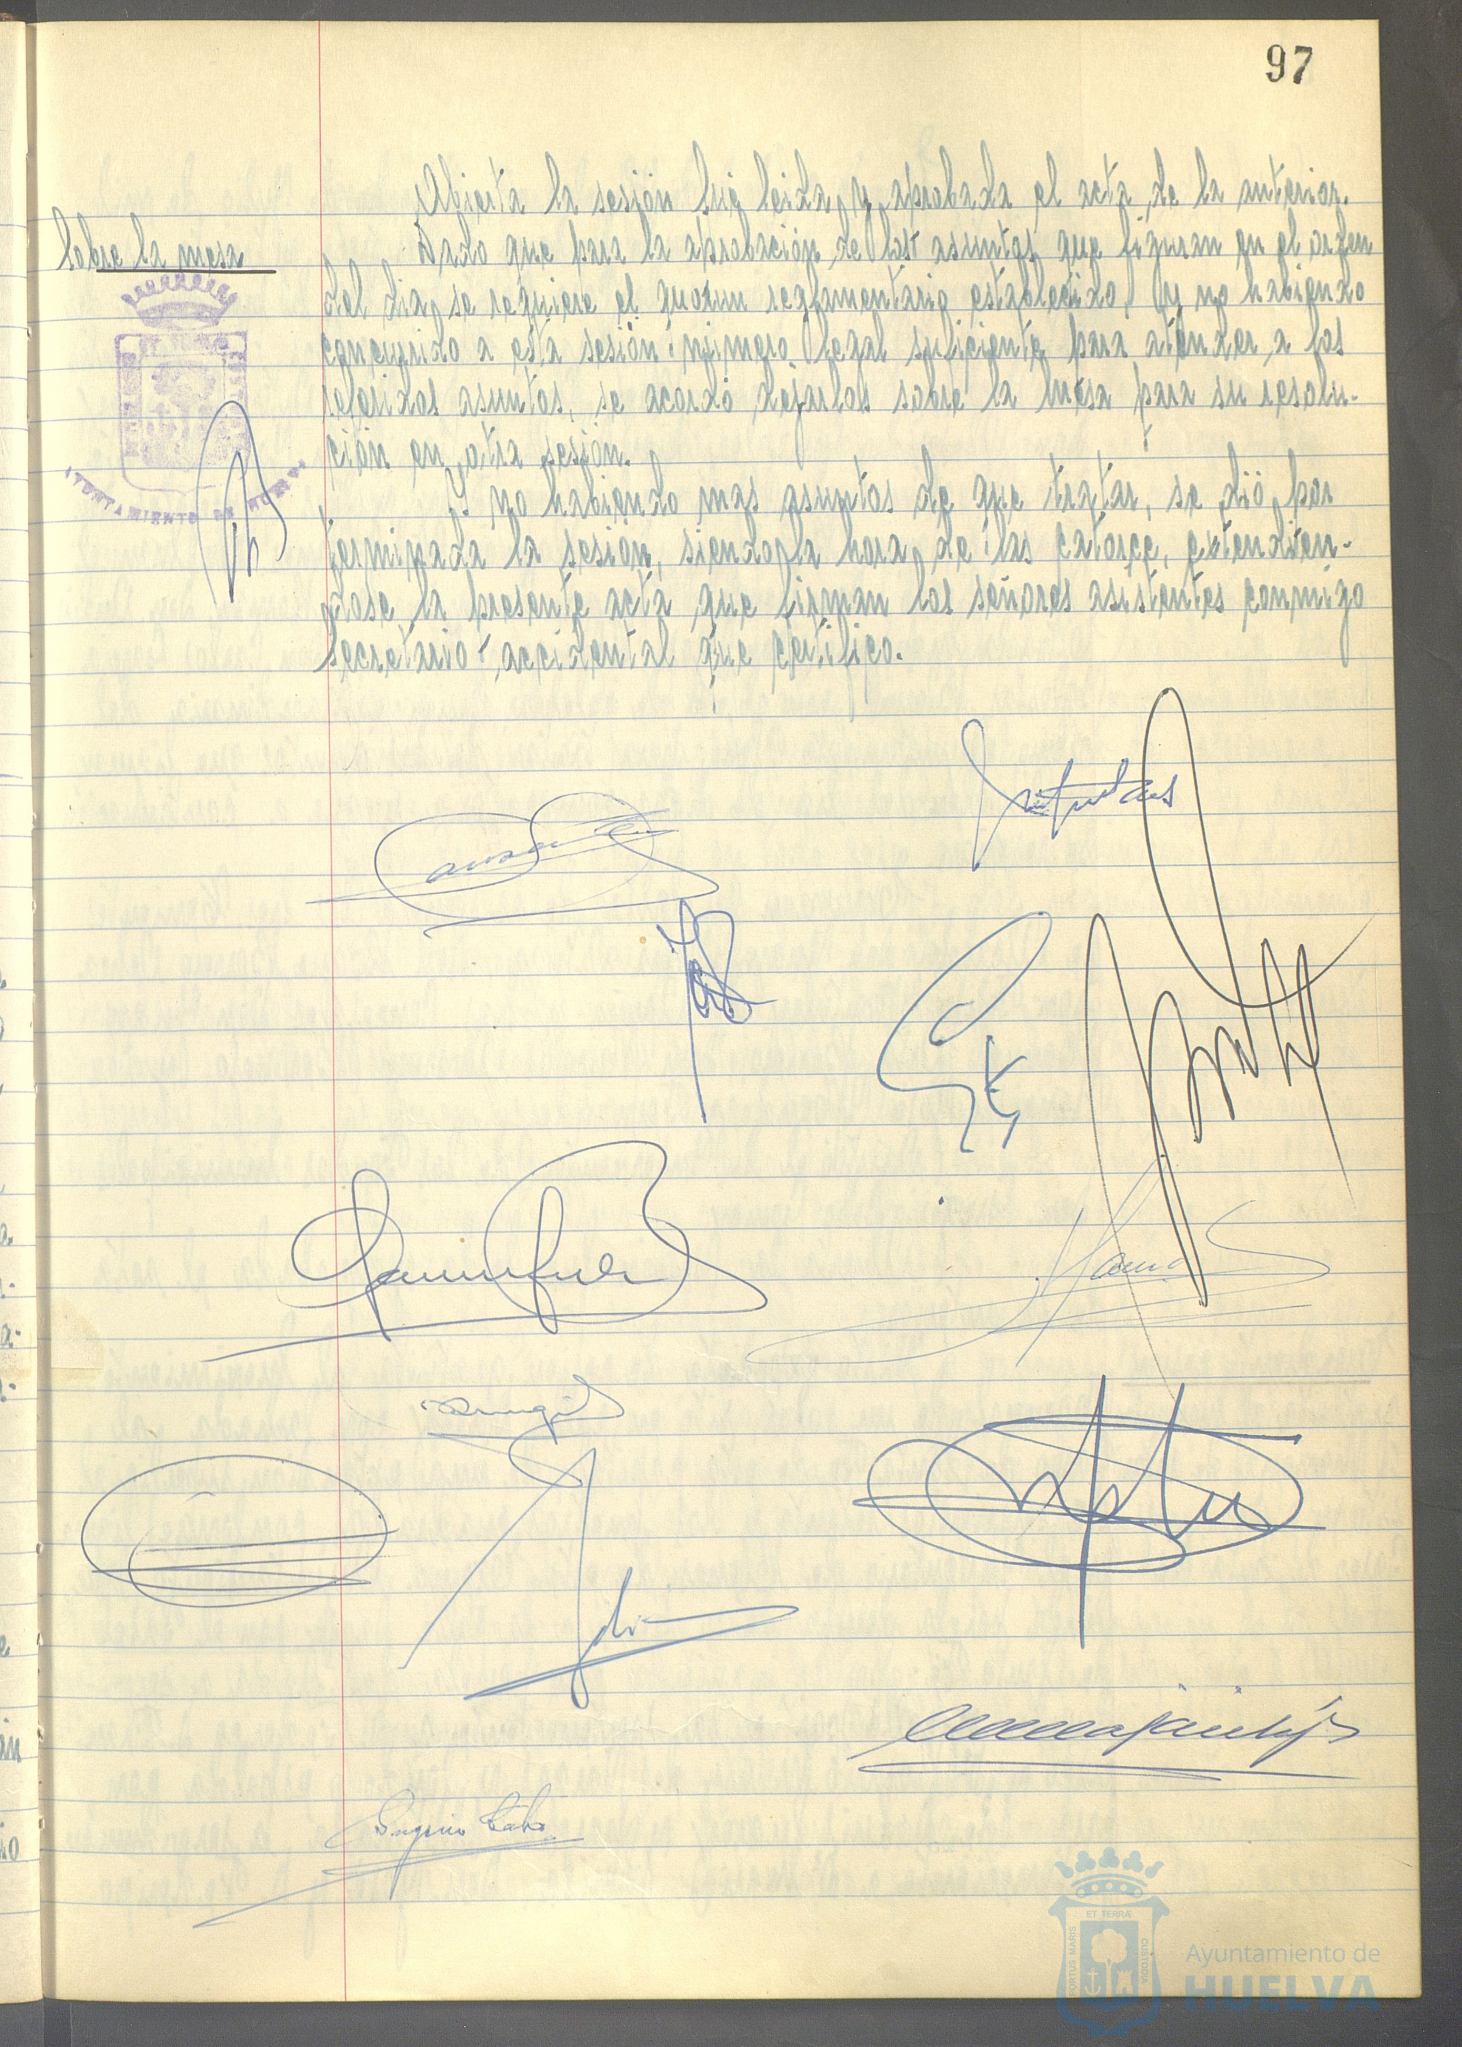 97
Abierta la sesión fué leida y aprobada el acta de la anterior.
Sobre la mesa
Dado que para la aprobación de los asuntos que figuran en el orden
del dia, se requiere el quorun reglamentario establecido, y no habiendo
concurrido a esta sesión número legal suficiente para atender a los
referidos asuntos, se acordó dejarlos sobre la mesa para su resolu-
ción en otra sesión.
Y no habiendo mas asuntos de que tratar, se dió por
terminada la sesión, siendo la hora de las catorce, extendién-
dose la presente acta que firman los señores asistentes conmigo
secretario accidental que certifico.
AYUNTAMIENTO DE HUELVA
Eugenio
PORTUS MARIS ET TERRÆ CUSTODIA
Ayuntamiento de
HUELVA